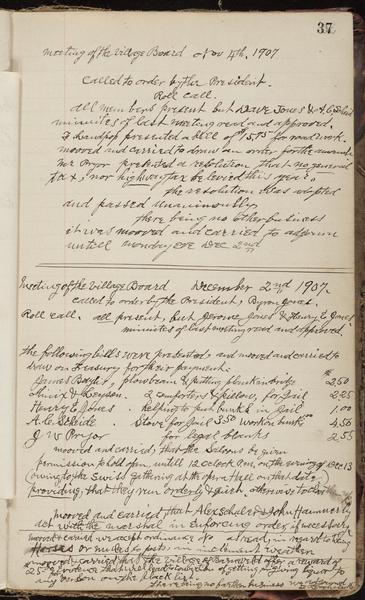 37
Meeting of the Village Board Nov 4th, 1907
Called to order by the President.
Roll Call.
All members present but Dave Jones &
minutes of last meeting read and approved.
presented a bill of $ for road work.
mooved and carried to draw an order for the amount.
Mr Pryor presented a resolution that no general
tax, nor highway tax be levied this year.
the resolution was adopted
and passed unanimously
there being no other business
it was mooved and carried to adjourn
untill monday eve Dec 2nd
Meeting of the Village Board December 2nd 1907.
Called to order by the President, Byron Jones.
Roll call. all present, but Jerome Jones & Henry E Jones.
minutes of last meeting read and approved.
the following bills were presented, and mooved and carried to
draw on Treasury for their payment.
James , & putting plank in bridge $2.50
& , 2 comforters & pillow, for Jail 2.25
Henry E Jones. helping to put bunks in Jail 1.00
A.C. Scheide. Stove for Jail 3.50 work on bunks 4.50
J W Pryor for legal blanks 2.55
mooved and carried, that the Saloons be given
permission to hold open, untill 12 o'clock on the evening of Dec 13
owing to the Swiss gathering at the opera Hall on that date
providing, that they run orderly & quiet,
mooved and carried that Alex & John
act with the marshal in Enforcing order, if necessary
Horses or mules to posts in inclement weather
mooved & carried that the village a reward of
25 evidence that will lead to of getting or giving liquor to
any person on the black list.
there being no further business we adjourned